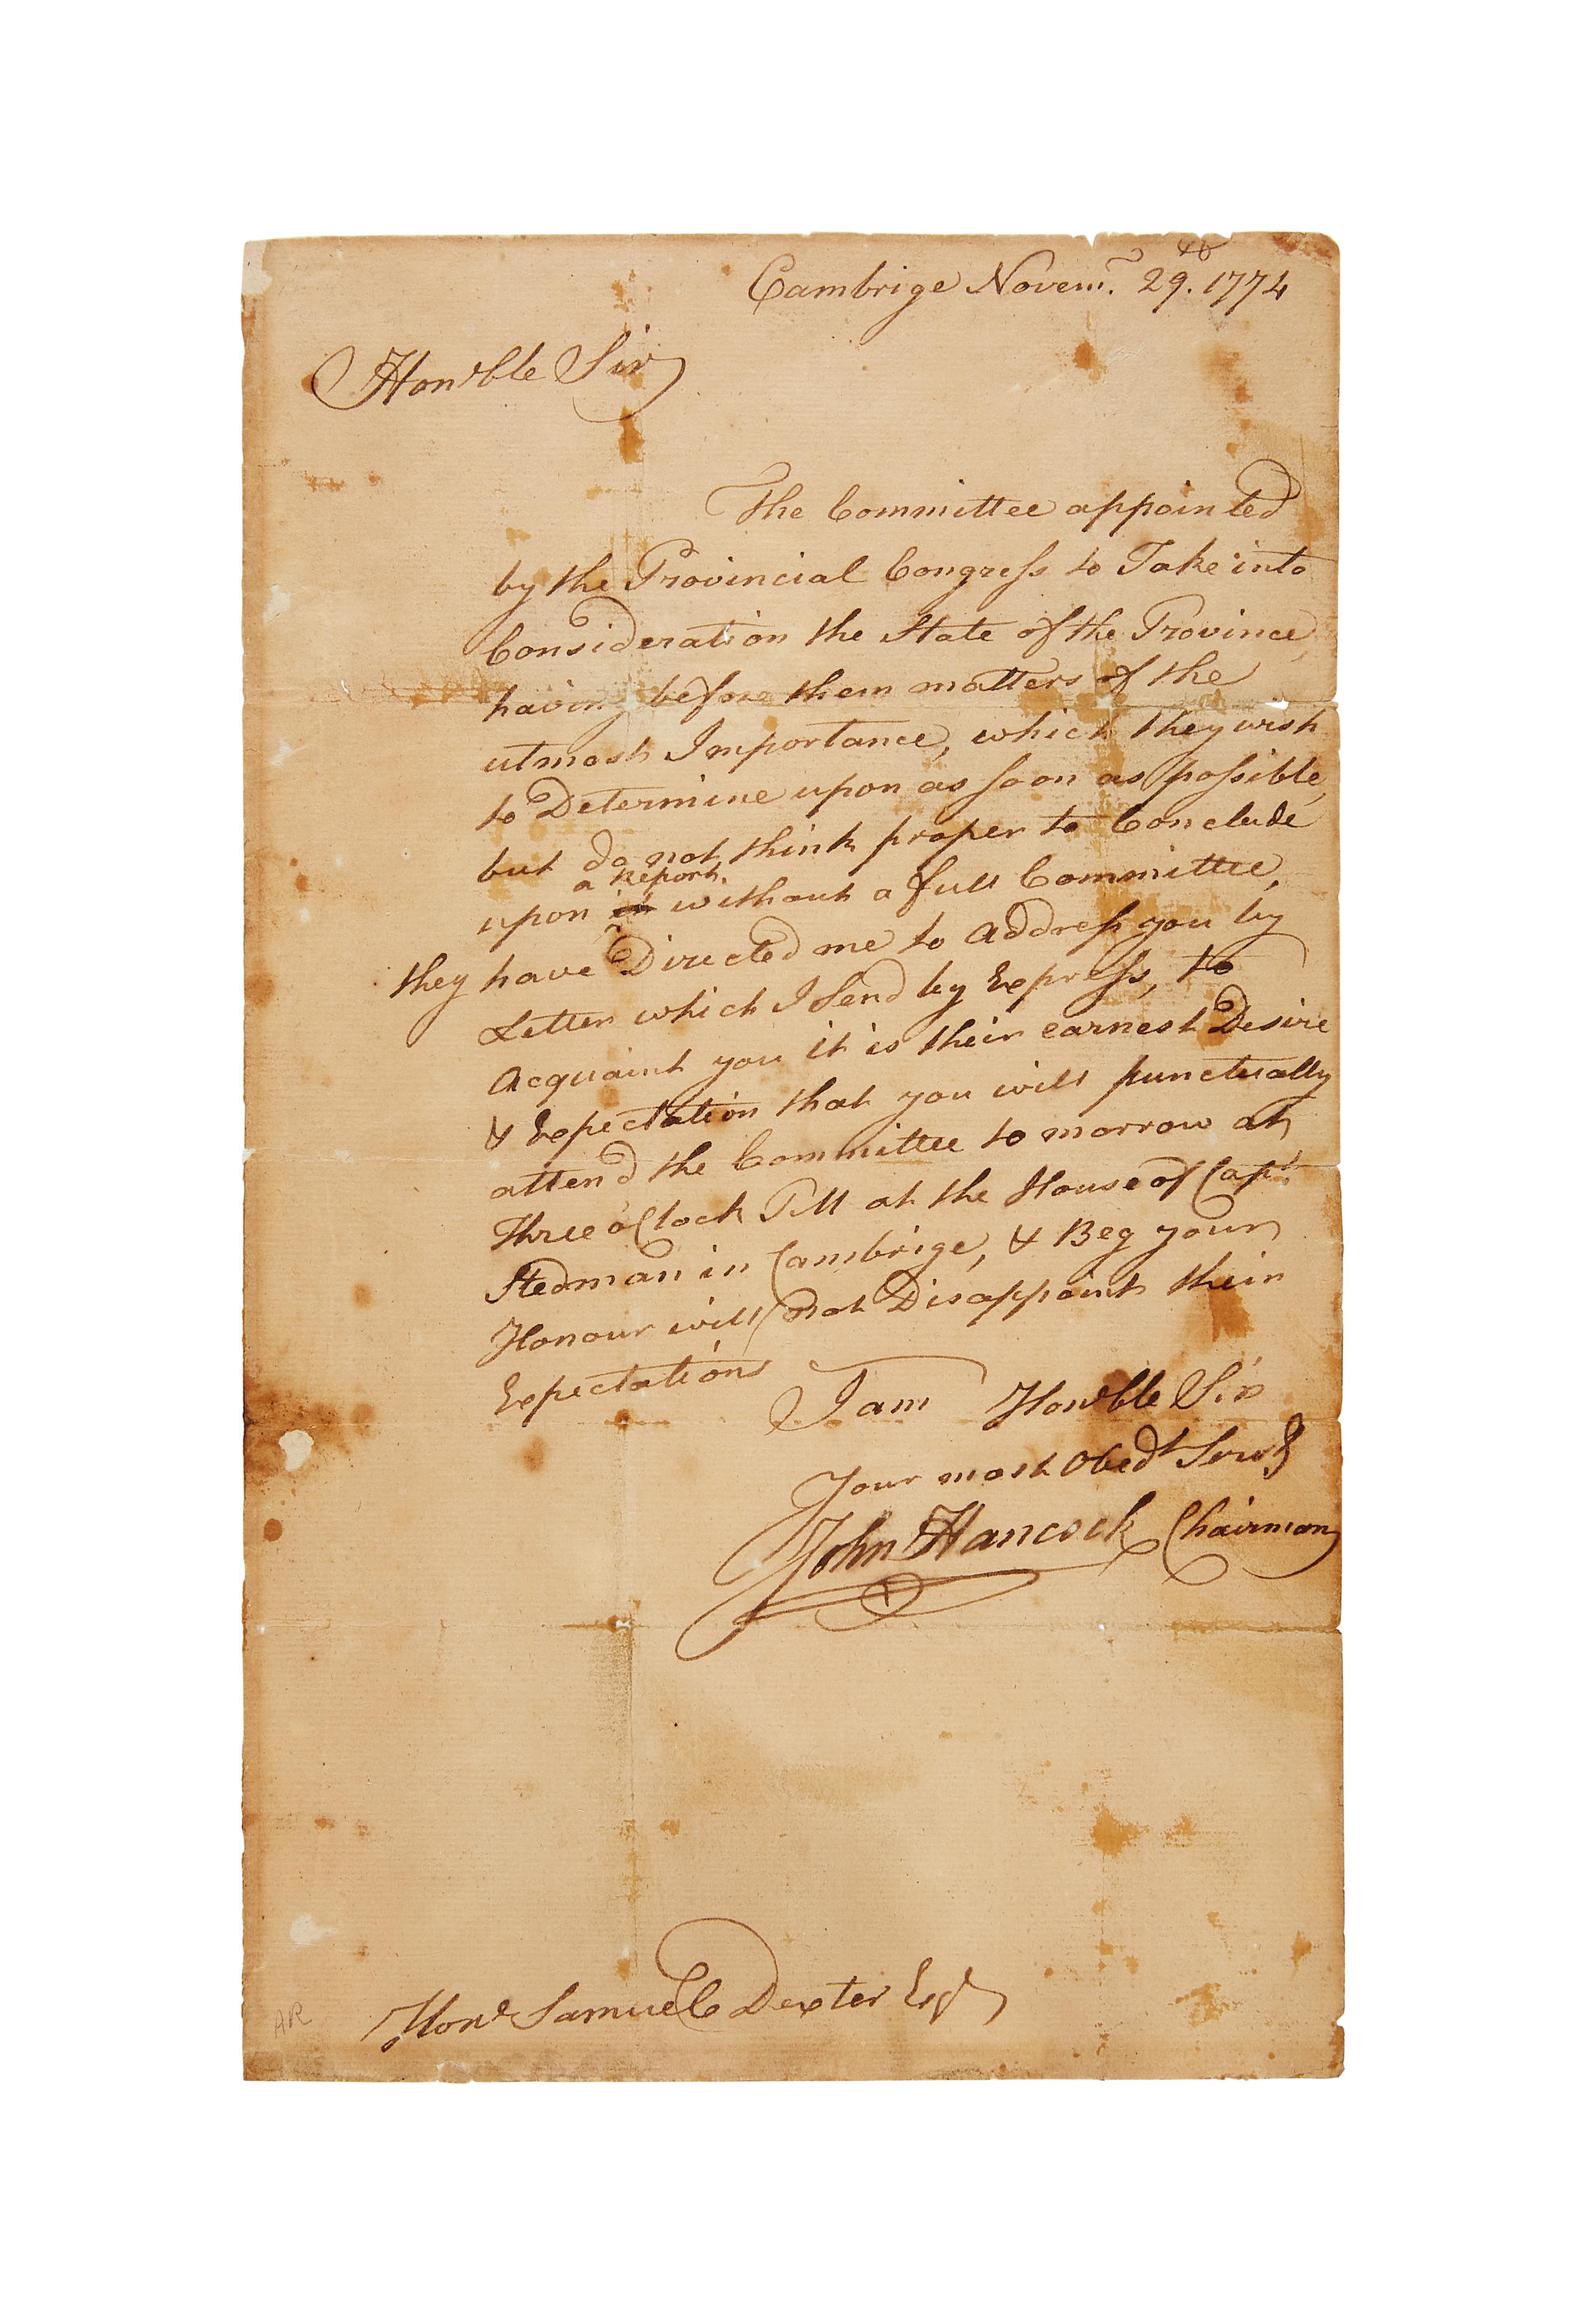 Cambrige Novem.r 29.th 1774
Hon'ble Sir
The Committee appointed
by the Provincial Congress to Take into
Consideration the State of the Province,
having before them matters of the
utmost Importance, which they wish
to Determine upon as soon as possible,
but do not think proper to Conclude
a Report
upon it without a full Committee,
they have Directed me to address you by
Letter which I Send by Express, to
Acquaint you it is their earnest Desire
& Expectation that you will punctually
attend the Committee to morrow at
Three o'Clock P.M at the House of Cap.t
Stedman in Cambrige, & Beg your
Honour will not Disappoint their
Expectations
I am Hon'ble Sir
Your most Obed.t Serv.t
John Hancock Chairman
Hon.l Samuel Dexter Esq.r
AR